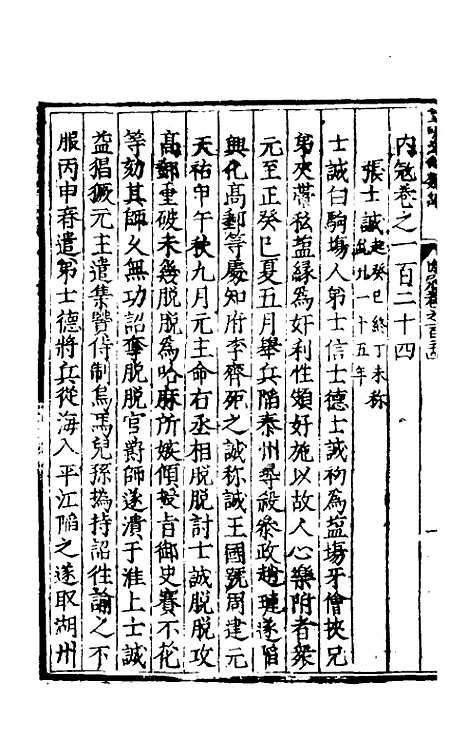 內冦卷之一百二十四
張士誠起癸巳終丁未称
亂九一十五年
士誠白駒塲人弟士信士德士誠初為塩塲牙儈挾兄
弟夾帶私塩緣為奸利性頗好施以故人心樂附者衆
元至正癸巳夏五月舉兵陷泰州尋殺叅政趙璉遂陷
興化髙郵等處知府李齊死之誠称誠王國號周建元
天祐甲午秋九月元主命右丞相脱脱討士誠脱脱攻
髙郵垂破未幾脱脱為哈麻所嫉傾授旨御史賽不花
等劾其師久無功詔奪脱脱官爵師遂潰于淮上士誠
益猖獗元主遣集賢侍制烏馬兒孫㧑持詔徃諭之不
服丙申春遣弟士德將兵從海入平江陷之遂取湖州